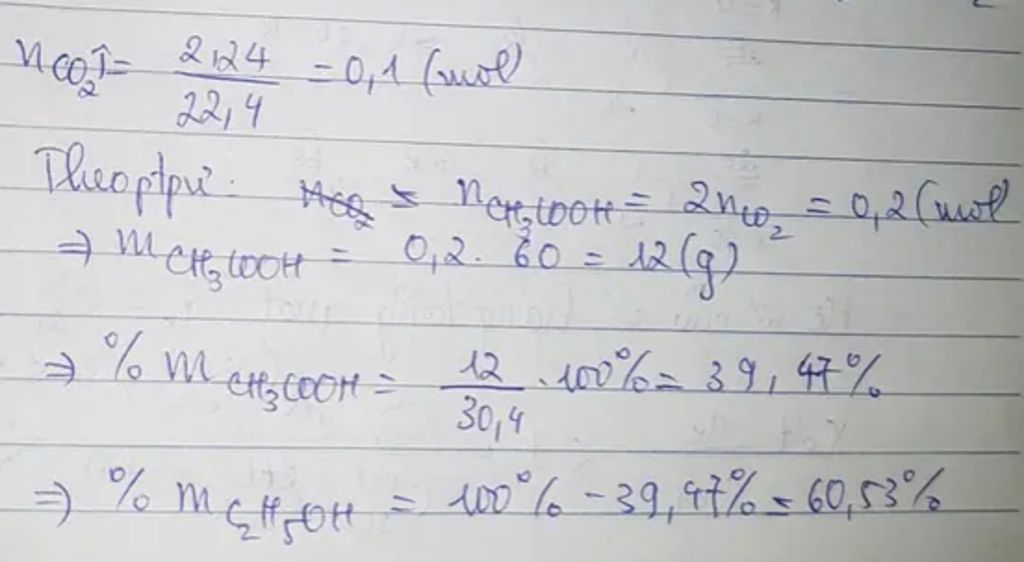 nCO2↑ = 2,24 / 22,4 = 0,1 (mol)
Theo ptpứ: nCO2 = nCH3COOH = 2nCO2 = 0,2 (mol
⇒ mCH3COOH = 0,2 . 60 = 12 (g)
⇒ % mCH3COOH = 12 / 30,4 . 100% = 39,47%
⇒ % mC2H5OH = 100% - 39,47% = 60,53%